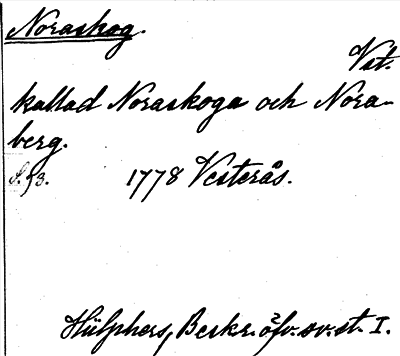 Noraskog.
Vst.
kallad Noraskoga och Nora-
berg.
S. 93. 1778 Vesterås.
Hülphers, Beskr. öfv. sv. st. I.